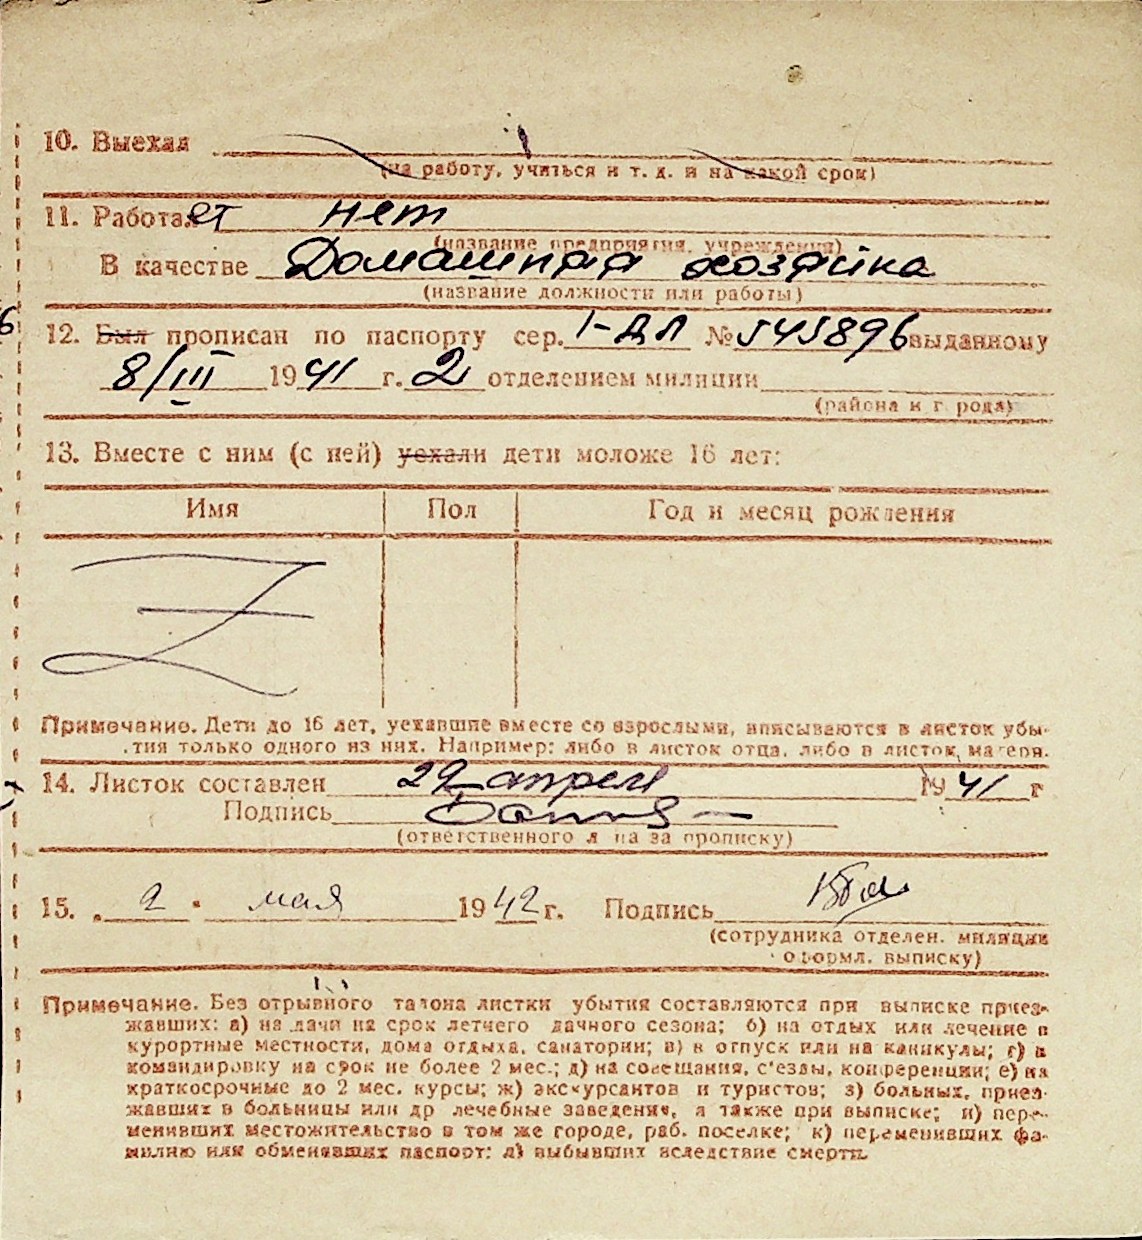 10. Выехал
(на работу, учиться и т. д. и на какой срок)
11. Работает нет
(название предприятия, учреждения)
В качестве Домашная хозяйка
(название должности или работы)
12. Был прописан по паспорту сер. I-ДЛ № 545896 выданному
8/III 1941 г. 2 отделением милиции
(района и города)
13. Вместе с ним (с ней) уехали дети моложе 16 лет:
Имя Пол Год и месяц рождения
Z
Примечание. Дети до 16 лет, уехавшие вместе со взрослыми, вписываются в листок убы-
тия только одного из них. Например: либо в листок отца, либо в листок матери.
14. Листок составлен 29 апреля 1941 г
Подпись
(ответственного л на за прописку)
15. „ 2 " мая 1942 г. Подпись
(сотрудника отделен. милиции
оформл. выписку)
Примечание. Без отрывного талона листки убытия составляются при выписке приез-
жавших: а) на дачи на срок летнего дачного сезона; б) на отдых или лечение в
курортные местности, дома отдыха, санатории; в) в отпуск или на каникулы; г) в
командировку на срок не более 2 мес.; д) на совещания, с'езды, конференции; е) на
краткосрочные до 2 мес. курсы; ж) экскурсантов и туристов; з) больных, приез-
жавших в больницы или др лечебные заведения, а также при выписке; и) пере-
менивших местожительство в том же городе, раб. поселке; к) переменивших фа-
милию или обменявших паспорт; л) выбывших вследствие смерти.